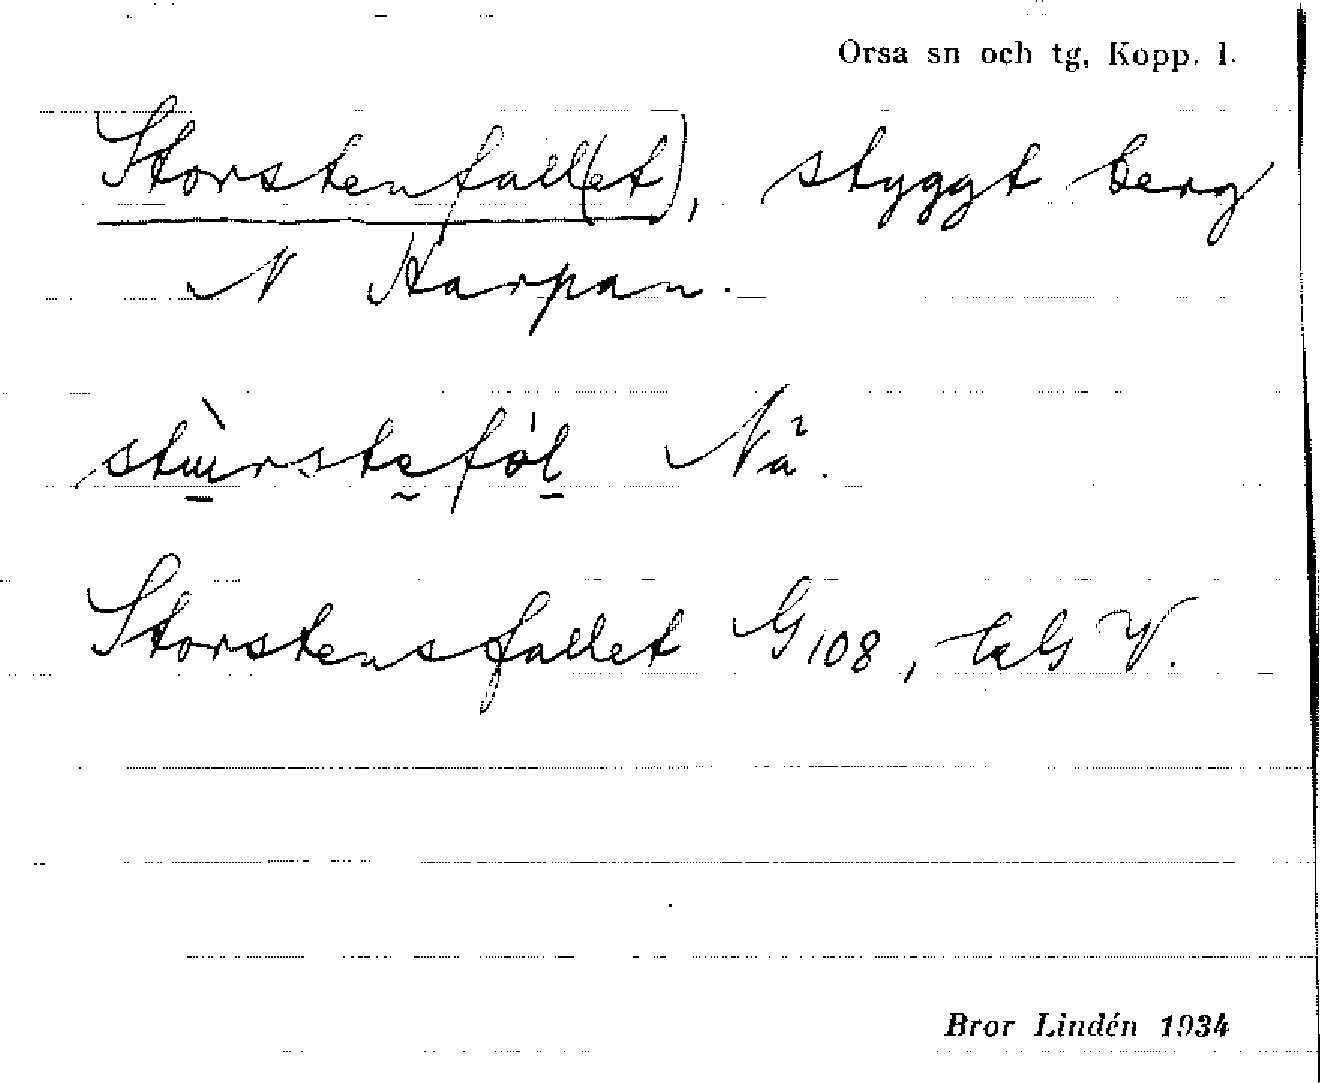 Orsa sn och tg, Kopp. l.
Storstenfall(et), styggt berg
N Harpan.
Nä².
Storstensfallet G 108,
Bror Lindén 1934